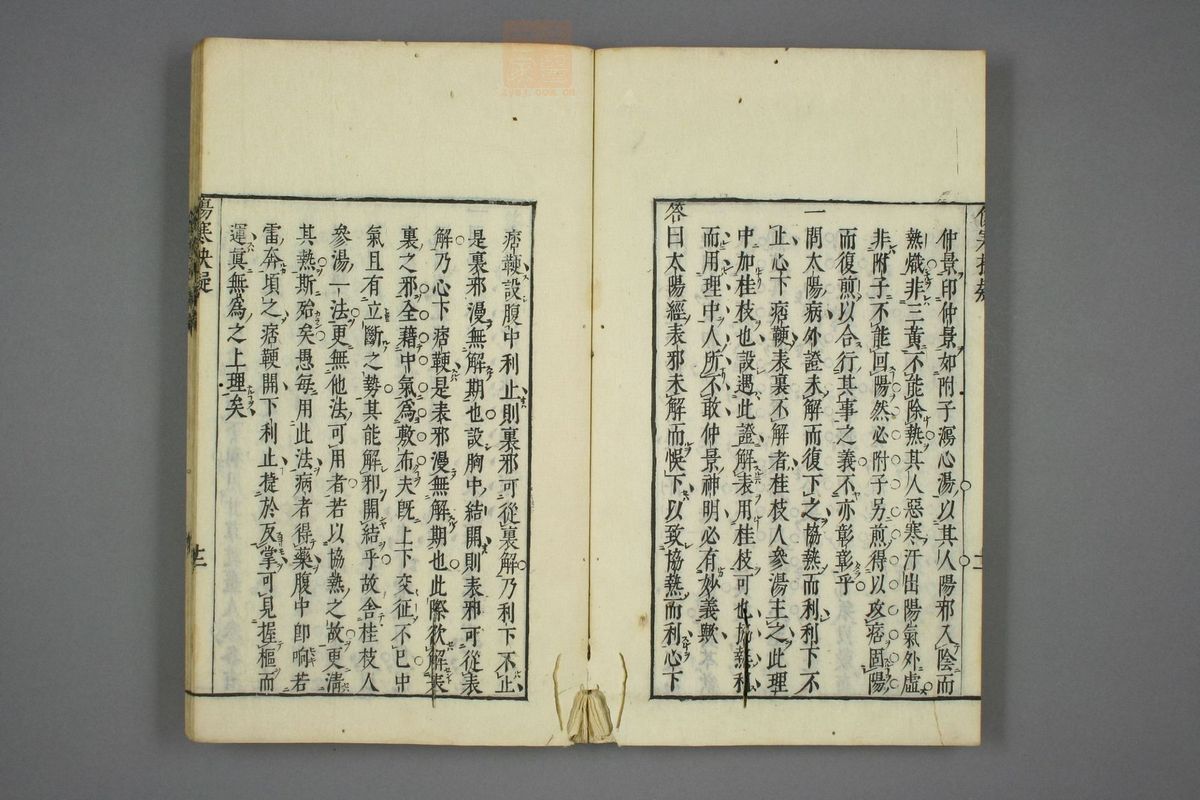 仲景印仲景如附子瀉心湯以其人陽邪入陰而
熱熾非三黃不能除熱其人惡寒汗出陽氣外虛
非附子不能回陽然必附子另煎得以攻痞固陽
而復煎以合行其事之義不亦彰彰乎
一問太陽病外證未解而復下之協熱而利利下不
止心下痞鞕表裏不解者桂枝人參湯主之此理
中加桂枝也設遇此證解表用桂枝可也協熱利
而用理中人所不敢仲景神明必有妙義歟
答曰太陽經表邪未解而悞下以致協熱而利心下
痞鞕設腹中利止則裏邪可從裏解乃利下不止
是裏邪漫無解期也設胸中結開則表邪可從表
解乃心下痞鞕是表邪漫無解期也此際欲解表
裏之邪全藉中氣為敷布夫既上下交征不已中
氣且有立斷之勢其能解邪開結乎故舍桂枝人
參湯一法更無他法可用者若以協熱之故更清
其熱斯殆矣愚每用此法病者得藥腹中即响若
雷奔頃之痞鞕開下利止捷於反掌可見握樞而
運眞無為之上理矣
傷寒抉疑
十二